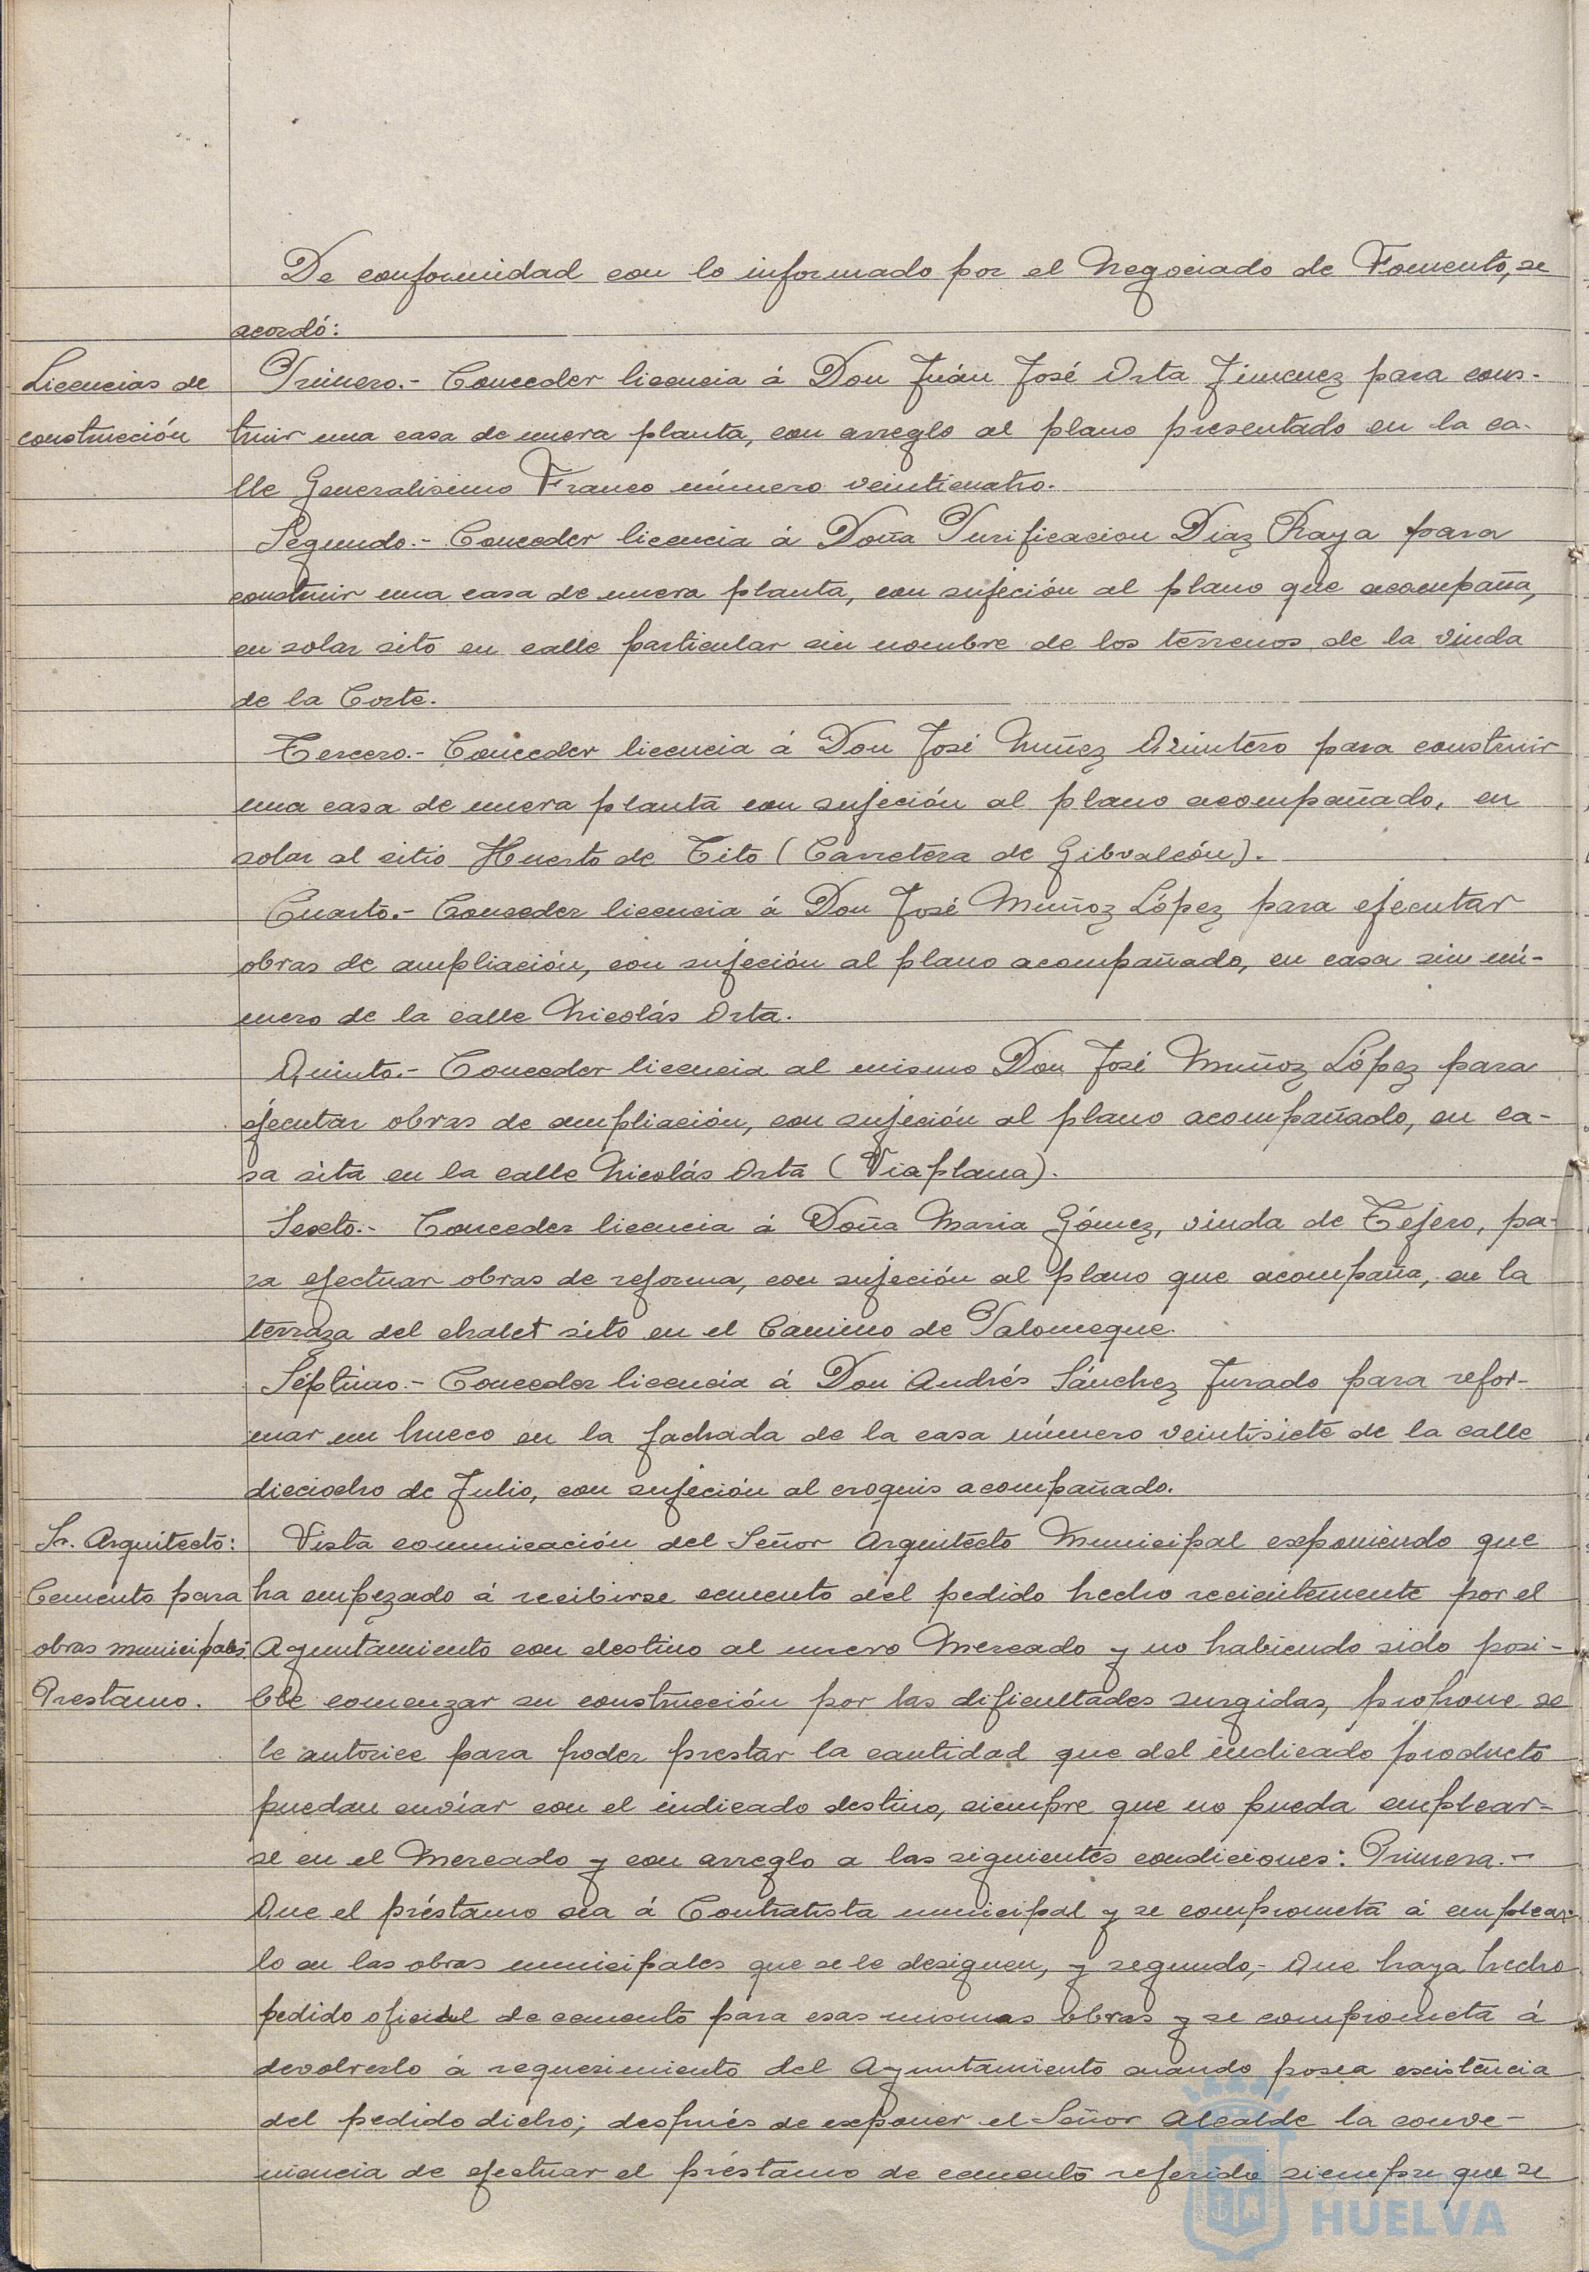 De conformidad con lo informado por el Negociado de Fomento, se
acordó:
Licencias de
construcción
Primero.- Conceder licencia á Don Juán José Orta Jimenez para cons-
truir una casa de nueva planta, con arreglo al plano presentado en la ca-
lle Generalisimo Franco número veinticuatro.
Segundo.- Conceder licencia á Doña Purificacion Diaz Raya para
construir una casa de nueva planta, con sujeción al plano que acompaña,
en solar sito en calle particular sin nombre de los terrenos de la viuda
de la Corte.
Tercero.- Conceder licencia á Don José Nuñez Quintero para construir
una casa de nueva planta con sujeción al plano acompañado, en
solar al sitio Huerto de Tito (Carretera de Gibraleón).
Cuarto.- Conceder licencia á Don José Muñoz López para ejecutar
obras de ampliación, con sujeción al plano acompañado, en casa sin nú-
mero de la calle Nicolás Orta.
Quinto.- Conceder licencia al mismo Don José Muñoz López para
ejecutar obras de ampliación, con sujeción al plano acompañado, en ca-
sa sita en la calle Nicolás Orta (Viaplana).
Sexto.- Conceder licencia á Doña Maria Gómez, viuda de Tejero, pa-
ra efectuar obras de reforma, con sujeción al plano que acompaña, en la
terraza del chalet sito en el Camino de Palomeque.
Séptimo.- Conceder licencia á Don Andrés Sánchez Jurado para refor-
mar un hueco en la fachada de la casa número veintisiete de la calle
dieciocho de Julio, con sujeción al croquis acompañado.
Sr. Arquitecto:
Cemento para
obras municipales.
Prestamo.
Vista comunicación del Señor Arquitecto Municipal exponiendo que
ha empezado á recibirse cemento del pedido hecho recientemente por el
Ayuntamiento con destino al nuevo Mercado y no habiendo sido posi-
ble comenzar su construcción por las dificultades surgidas, propone se
le autorice para poder prestar la cantidad que del indicado producto
puedan enviar con el indicado destino, siempre que no pueda emplear-
se en el Mercado y con arreglo a las siguientes condiciones: Primera.-
Que el préstamo sea á Contratista municipal y se comprometa á emplear-
lo en las obras municipales que se le designen, y segundo,- Que haya hecho
pedido oficial de cemento para esas mismas obras y se comprometa á
devolverlo á requerimiento del Ayuntamiento cuando posea existencia
del pedido dicho; después de exponer el Señor Alcalde la conve-
niencia de efectuar el préstamo de cemento referido siempre que se
HUELVA